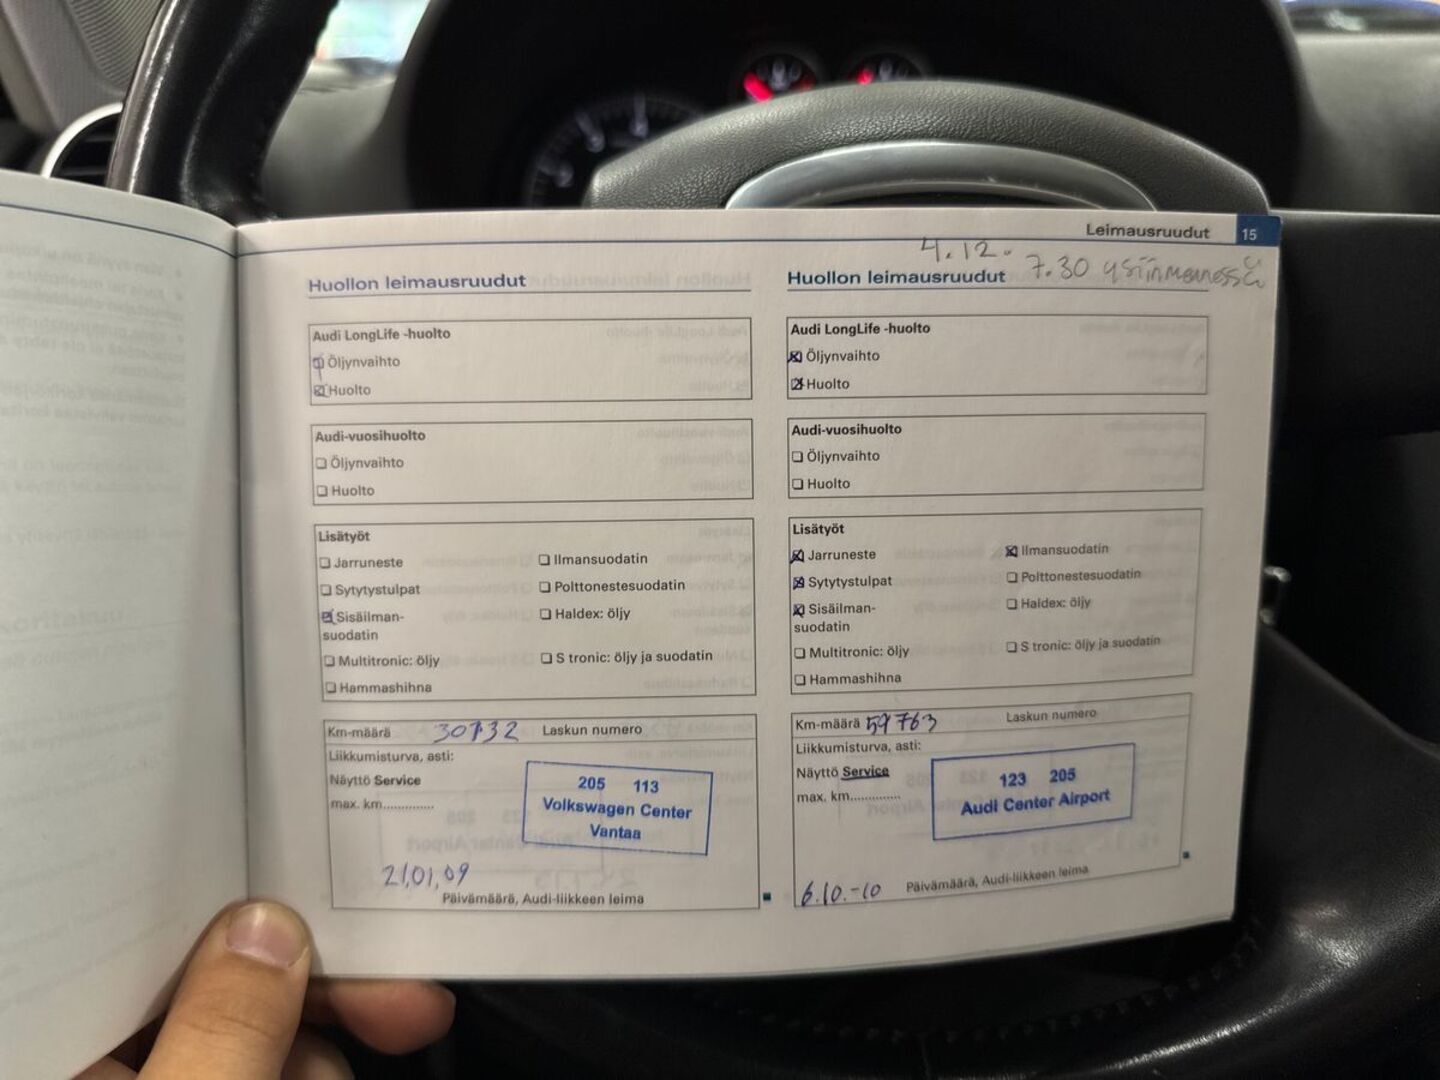 Leimausruudut 15
4.12.
7.30
Huollon leimausruudut
Audi LongLife -huolto
Öljynvaihto
Huolto
Audi-vuosihuolto
Öljynvaihto
Huolto
Lisätyöt
Jarruneste
Ilmansuodatin
Sytytystulpat
Polttonestesuodatin
Sisäilman-
suodatin
Haldex: öljy
Multitronic: öljy
S tronic: öljy ja suodatin
Hammashihna
Km-määrä 30732 Laskun numero
Liikkumisturva, asti:
Näyttö Service
max. km..............
205 113
Volkswagen Center
Vantaa
21,01,09
Päivämäärä, Audi-liikkeen leima
Huollon leimausruudut
Audi LongLife -huolto
Öljynvaihto
Huolto
Audi-vuosihuolto
Öljynvaihto
Huolto
Lisätyöt
Jarruneste
Ilmansuodatin
Sytytystulpat
Polttonestesuodatin
Sisäilman-
suodatin
Haldex: öljy
Multitronic: öljy
S tronic: öljy ja suodatin
Hammashihna
Km-määrä 59763 Laskun numero
Liikkumisturva, asti:
Näyttö Service
max. km..............
123 205
Audi Center Airport
6.10.-10 Päivämäärä, Audi-liikkeen leima